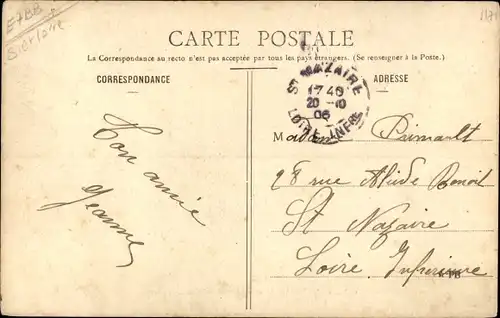 E7BB
CARTE POSTALE
La Correspondance au recto n'est pas acceptée par tous les pays étrangers. (Se renseigner à la Poste.)
CORRESPONDANCE
ADRESSE
ST NAZAIRE
17 40
20 - 10
06
LOIRE INFRE
Ton amie
Jeanne
Madame Primault
28 rue Benoit
St Nazaire
Loire Inférieure